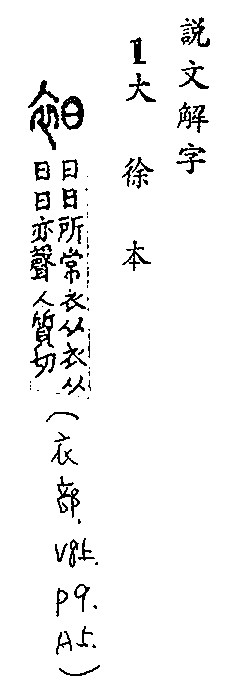 說文解字
1大徐本
衵日日所常衣从衣从
日日亦聲人質切
(衣部.V8上.P9.A5.)